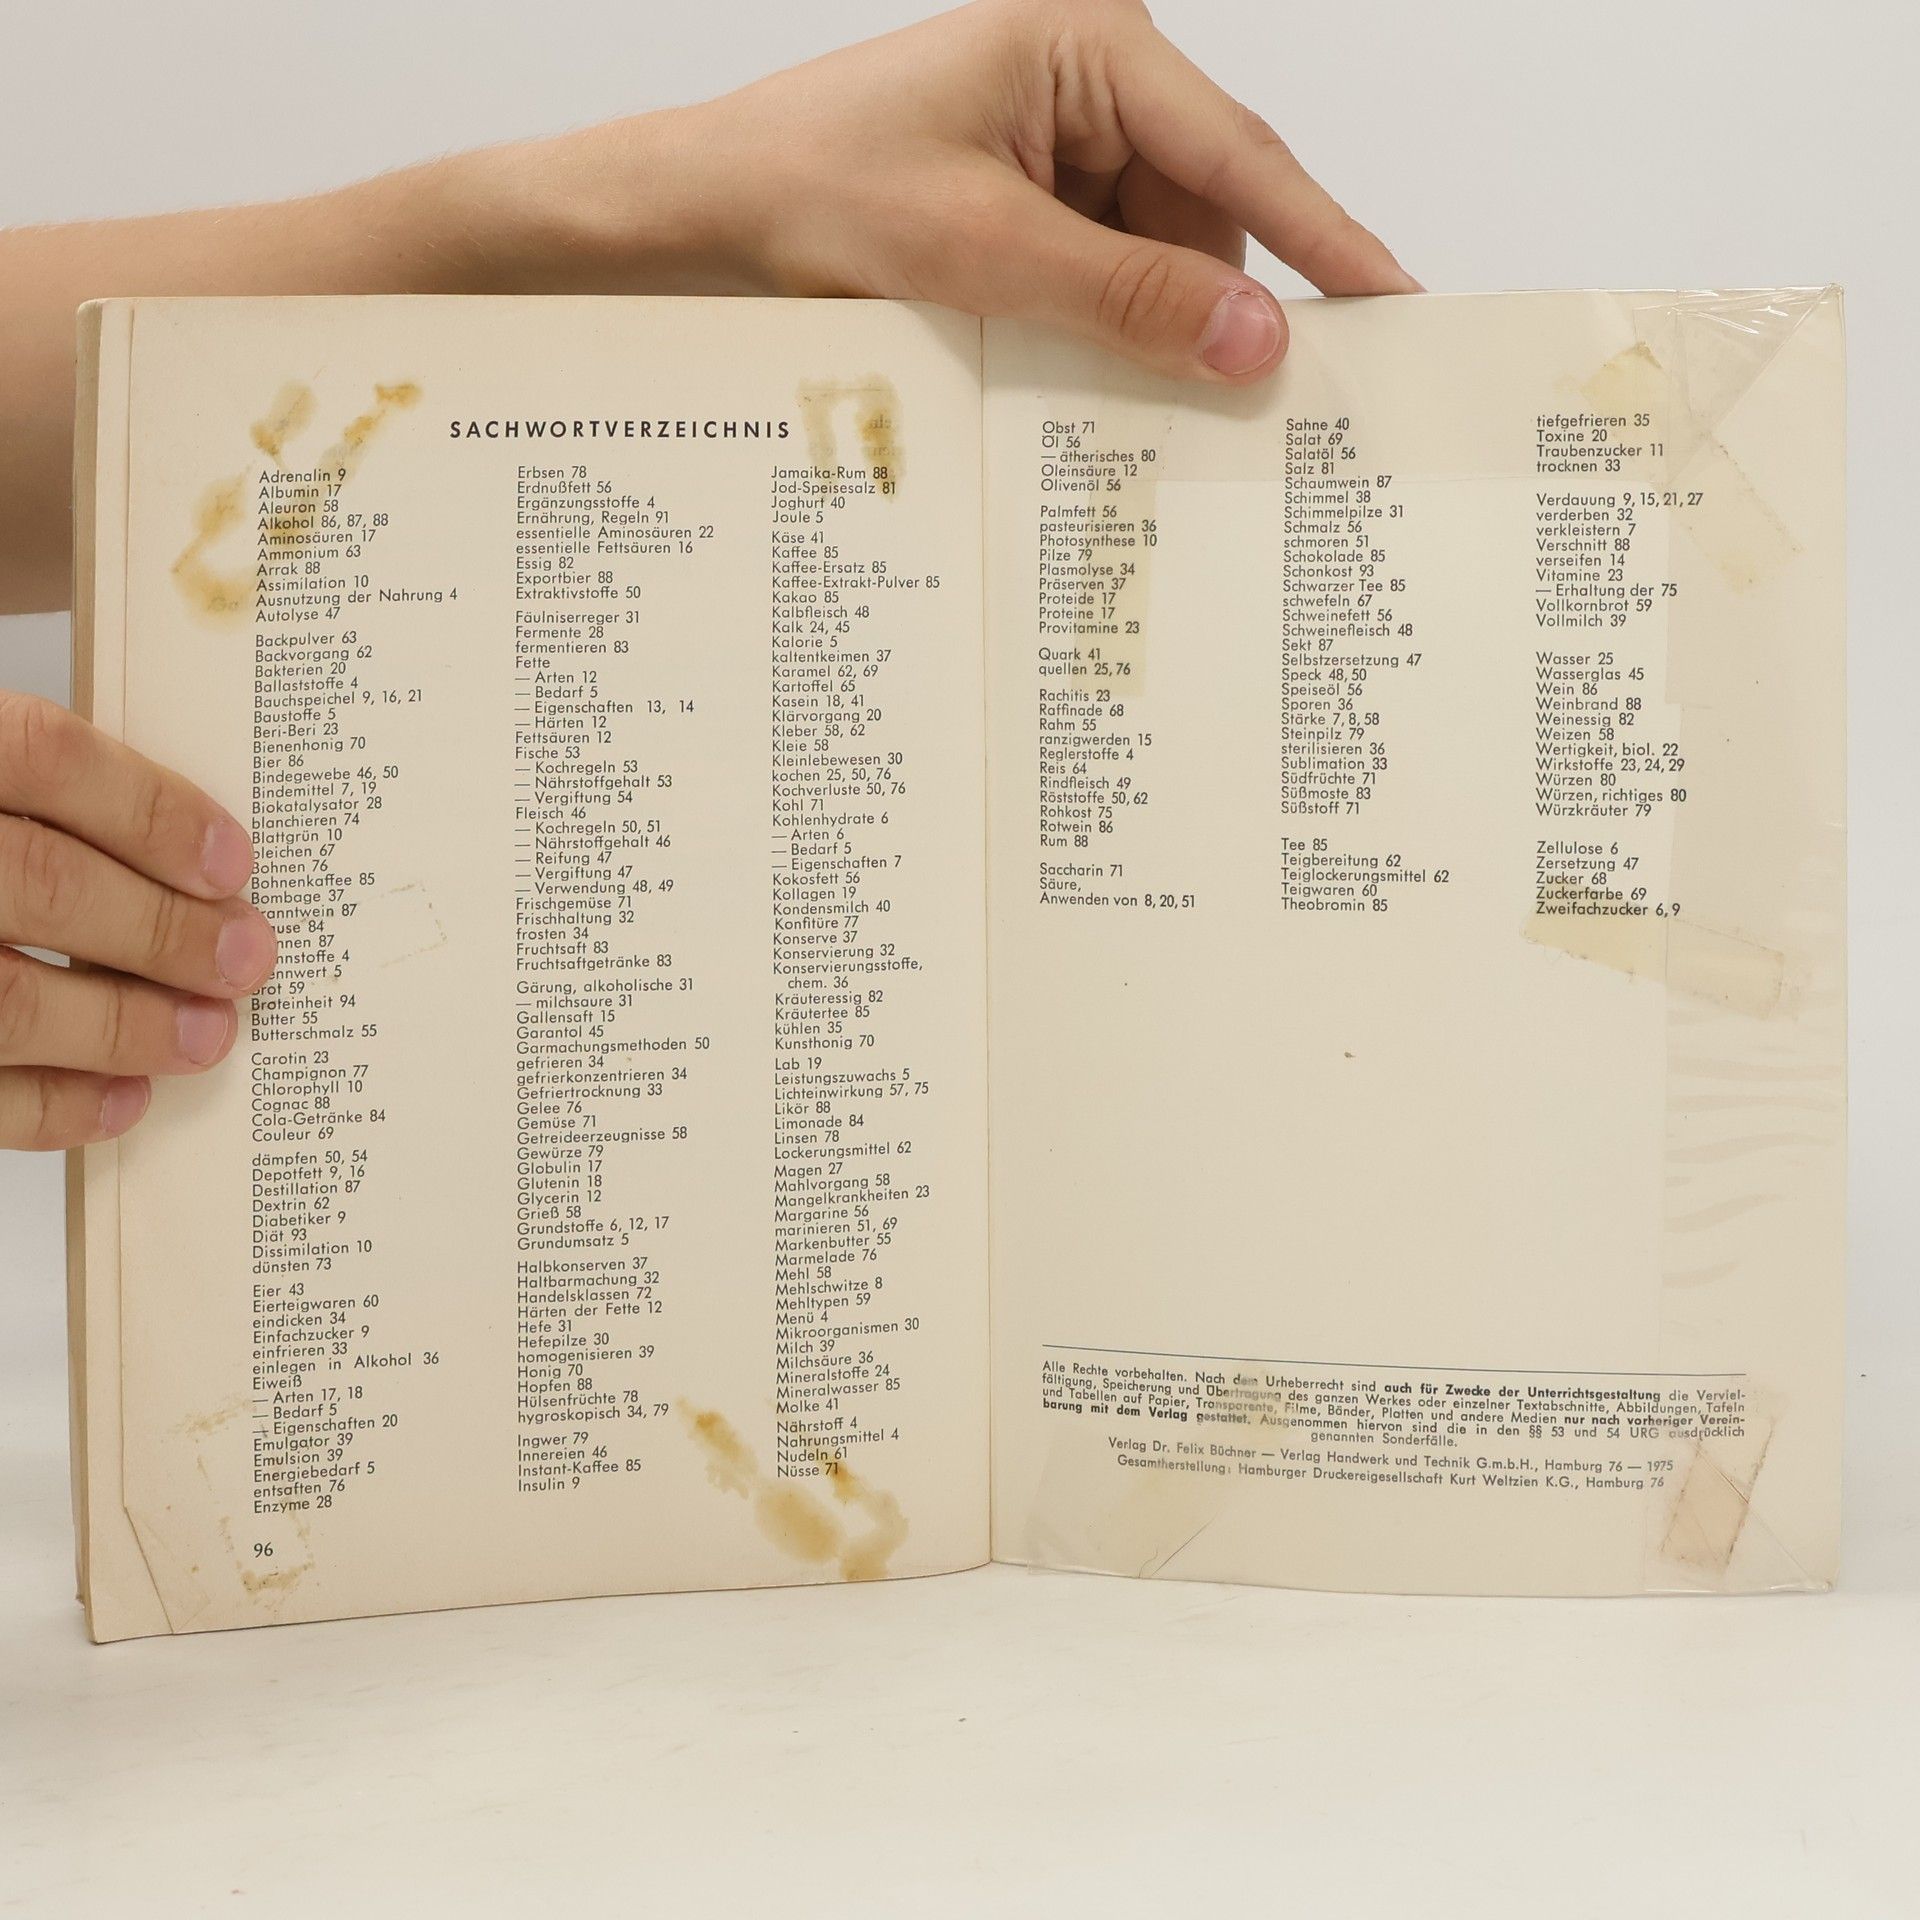 SACHWORTVERZEICHNIS
Adrenalin 9
Albumin 17
Aleuron 58
Alkohol 86, 87, 88
Aminosäuren 17
Ammonium 63
Arrak 88
Assimilation 10
Ausnutzung der Nahrung 4
Autolyse 47
Backpulver 63
Backvorgang 62
Bakterien 20
Ballaststoffe 4
Bauchspeichel 9, 16, 21
Baustoffe 5
Beri-Beri 23
Bienenhonig 70
Bier 86
Bindegewebe 46, 50
Bindemittel 7, 19
Biokatalysator 28
blanchieren 74
Blattgrün 10
bleichen 67
Bohnen 76
Bohnenkaffee 85
Bombage 37
ranntwein 87
ause 84
nnen 87
nnstoffe 4
ennwert 5
Brot 59
Broteinheit 94
Butter 55
Butterschmalz 55
Carotin 23
Champignon 77
Chlorophyll 10
Cognac 88
Cola-Getränke 84
Couleur 69
dämpfen 50, 54
Depotfett 9, 16
Destillation 87
Dextrin 62
Diabetiker 9
Diät 93
Dissimilation 10
dünsten 73
Eier 43
Eierteigwaren 60
eindicken 34
Einfachzucker 9
einfrieren 33
einlegen in Alkohol 36
Eiweiß
— Arten 17, 18
— Bedarf 5
— Eigenschaften 20
Emulgator 39
Emulsion 39
Energiebedarf 5
entsaften 76
Enzyme 28
96
Erbsen 78
Erdnußfett 56
Ergänzungsstoffe 4
Ernährung, Regeln 91
essentielle Aminosäuren 22
essentielle Fettsäuren 16
Essig 82
Exportbier 88
Extraktivstoffe 50
Fäulniserreger 31
Fermente 28
fermentieren 83
Fette
— Arten 12
— Bedarf 5
— Eigenschaften 13, 14
— Härten 12
Fettsäuren 12
Fische 53
— Kochregeln 53
— Nährstoffgehalt 53
— Vergiftung 54
Fleisch 46
— Kochregeln 50, 51
— Nährstoffgehalt 46
— Reifung 47
— Vergiftung 47
— Verwendung 48, 49
Frischgemüse 71
Frischhaltung 32
frosten 34
Fruchtsaft 83
Fruchtsaftgetränke 83
Gärung, alkoholische 31
— milchsaure 31
Gallensaft 15
Garantol 45
Garmachungsmethoden 50
gefrieren 34
gefrierkonzentrieren 34
Gefriertrocknung 33
Gelee 76
Gemüse 71
Getreideerzeugnisse 58
Gewürze 79
Globulin 17
Glutenin 18
Glycerin 12
Grieß 58
Grundstoffe 6, 12, 17
Grundumsatz 5
Halbkonserven 37
Haltbarmachung 32
Handelsklassen 72
Härten der Fette 12
Hefe 31
Hefepilze 30
homogenisieren 39
Honig 70
Hopfen 88
Hülsenfrüchte 78
hygroskopisch 34, 79
Ingwer 79
Innereien 46
Instant-Kaffee 85
Insulin 9
Jamaika-Rum 88
Jod-Speisesalz 81
Joghurt 40
Joule 5
Käse 41
Kaffee 85
Kaffee-Ersatz 85
Kaffee-Extrakt-Pulver 85
Kakao 85
Kalbfleisch 48
Kalk 24, 45
Kalorie 5
kaltentkeimen 37
Karamel 62, 69
Kartoffel 65
Kasein 18, 41
Klärvorgang 20
Kleber 58, 62
Kleie 58
Kleinlebewesen 30
kochen 25, 50, 76
Kochverluste 50, 76
Kohl 71
Kohlenhydrate 6
— Arten 6
— Bedarf 5
— Eigenschaften 7
Kokosfett 56
Kollagen 19
Kondensmilch 40
Konfitüre 77
Konserve 37
Konservierung 32
Konservierungsstoffe,
chem. 36
Kräuteressig 82
Kräutertee 85
kühlen 35
Kunsthonig 70
Lab 19
Leistungszuwachs 5
Lichteinwirkung 57, 75
Likör 88
Limonade 84
Linsen 78
Lockerungsmittel 62
Magen 27
Mahlvorgang 58
Mangelkrankheiten 23
Margarine 56
marinieren 51, 69
Markenbutter 55
Marmelade 76
Mehl 58
Mehlschwitze 8
Mehltypen 59
Menü 4
Mikroorganismen 30
Milch 39
Milchsäure 36
Mineralstoffe 24
Mineralwasser 85
Molke 41
Nährstoff 4
Nahrungsmittel 4
Nudeln 61
Nüsse 71
Obst 71
Öl 56
— ätherisches 80
Oleinsäure 12
Olivenöl 56
Palmfett 56
pasteurisieren 36
Photosynthese 10
Pilze 79
Plasmolyse 34
Präserven 37
Proteide 17
Proteine 17
Provitamine 23
Quark 41
quellen 25, 76
Rachitis 23
Raffinade 68
Rahm 55
ranzigwerden 15
Reglerstoffe 4
Reis 64
Rindfleisch 49
Röststoffe 50, 62
Rohkost 75
Rotwein 86
Rum 88
Saccharin 71
Säure,
Anwenden von 8, 20, 51
Sahne 40
Salat 69
Salatöl 56
Salz 81
Schaumwein 87
Schimmel 38
Schimmelpilze 31
Schmalz 56
schmoren 51
Schokolade 85
Schonkost 93
Schwarzer Tee 85
schwefeln 67
Schweinefett 56
Schweinefleisch 48
Sekt 87
Selbstzersetzung 47
Speck 48, 50
Speiseöl 56
Sporen 36
Stärke 7, 8, 58
Steinpilz 79
sterilisieren 36
Sublimation 33
Südfrüchte 71
Süßmoste 83
Süßstoff 71
Tee 85
Teigbereitung 62
Teiglockerungsmittel 62
Teigwaren 60
Theobromin 85
tiefgefrieren 35
Toxine 20
Traubenzucker 11
trocknen 33
Verdauung 9, 15, 21, 27
verderben 32
verkleistern 7
Verschnitt 88
verseifen 14
Vitamine 23
— Erhaltung der 75
Vollkornbrot 59
Vollmilch 39
Wasser 25
Wasserglas 45
Wein 86
Weinbrand 88
Weinessig 82
Weizen 58
Wertigkeit, biol. 22
Wirkstoffe 23, 24, 29
Würzen 80
Würzen, richtiges 80
Würzkräuter 79
Zellulose 6
Zersetzung 47
Zucker 68
Zuckerfarbe 69
Zweifachzucker 6, 9
Alle Rechte vorbehalten. Nach dem Urheberrecht sind auch für Zwecke der Unterrichtsgestaltung die Verviel-
fältigung, Speicherung und Übertragung des ganzen Werkes oder einzelner Textabschnitte, Abbildungen, Tafeln
und Tabellen auf Papier, Transparente, Filme, Bänder, Platten und andere Medien nur nach vorheriger Verein-
barung mit dem Verlag gestattet. Ausgenommen hiervon sind die in den §§ 53 und 54 URG ausdrücklich
genannten Sonderfälle.
Verlag Dr. Felix Büchner — Verlag Handwerk und Technik G.m.b.H., Hamburg 76 — 1975
Gesamtherstellung: Hamburger Druckereigesellschaft Kurt Weltzien K.G., Hamburg 76